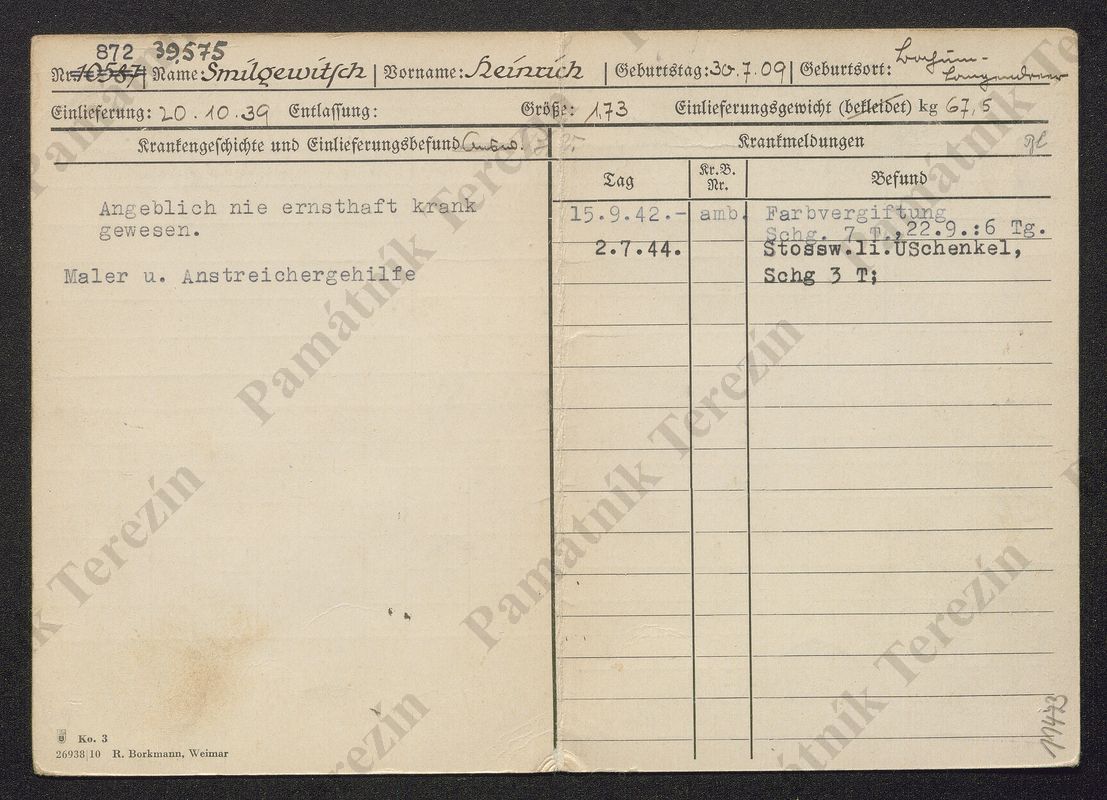 872 39,575
Nr. 10587 Name: Smilgewitsch Vorname: Heinrich Geburtstag: 30.7.09 Geburtsort: Bochum-Langendreer
Einlieferung: 20.10.39 Entlassung: Größe: 1,73 Einlieferungsgewicht (bekleidet) kg 67,5
Krankengeschichte und Einlieferungsbefund Krankmeldungen
Tag Kr.B. Nr. Befund
Angeblich nie ernsthaft krank
gewesen.
Maler u. Anstreichergehilfe
15.9.42.- amb. Farbvergiftung
Schg. 7 T., 22.9.:6 Tg.
2.7.44. Stossw.li.USchenkel,
Schg 3 T;
Ko. 3
26938|10 R. Borkmann, Weimar
11473
Památník Terezín